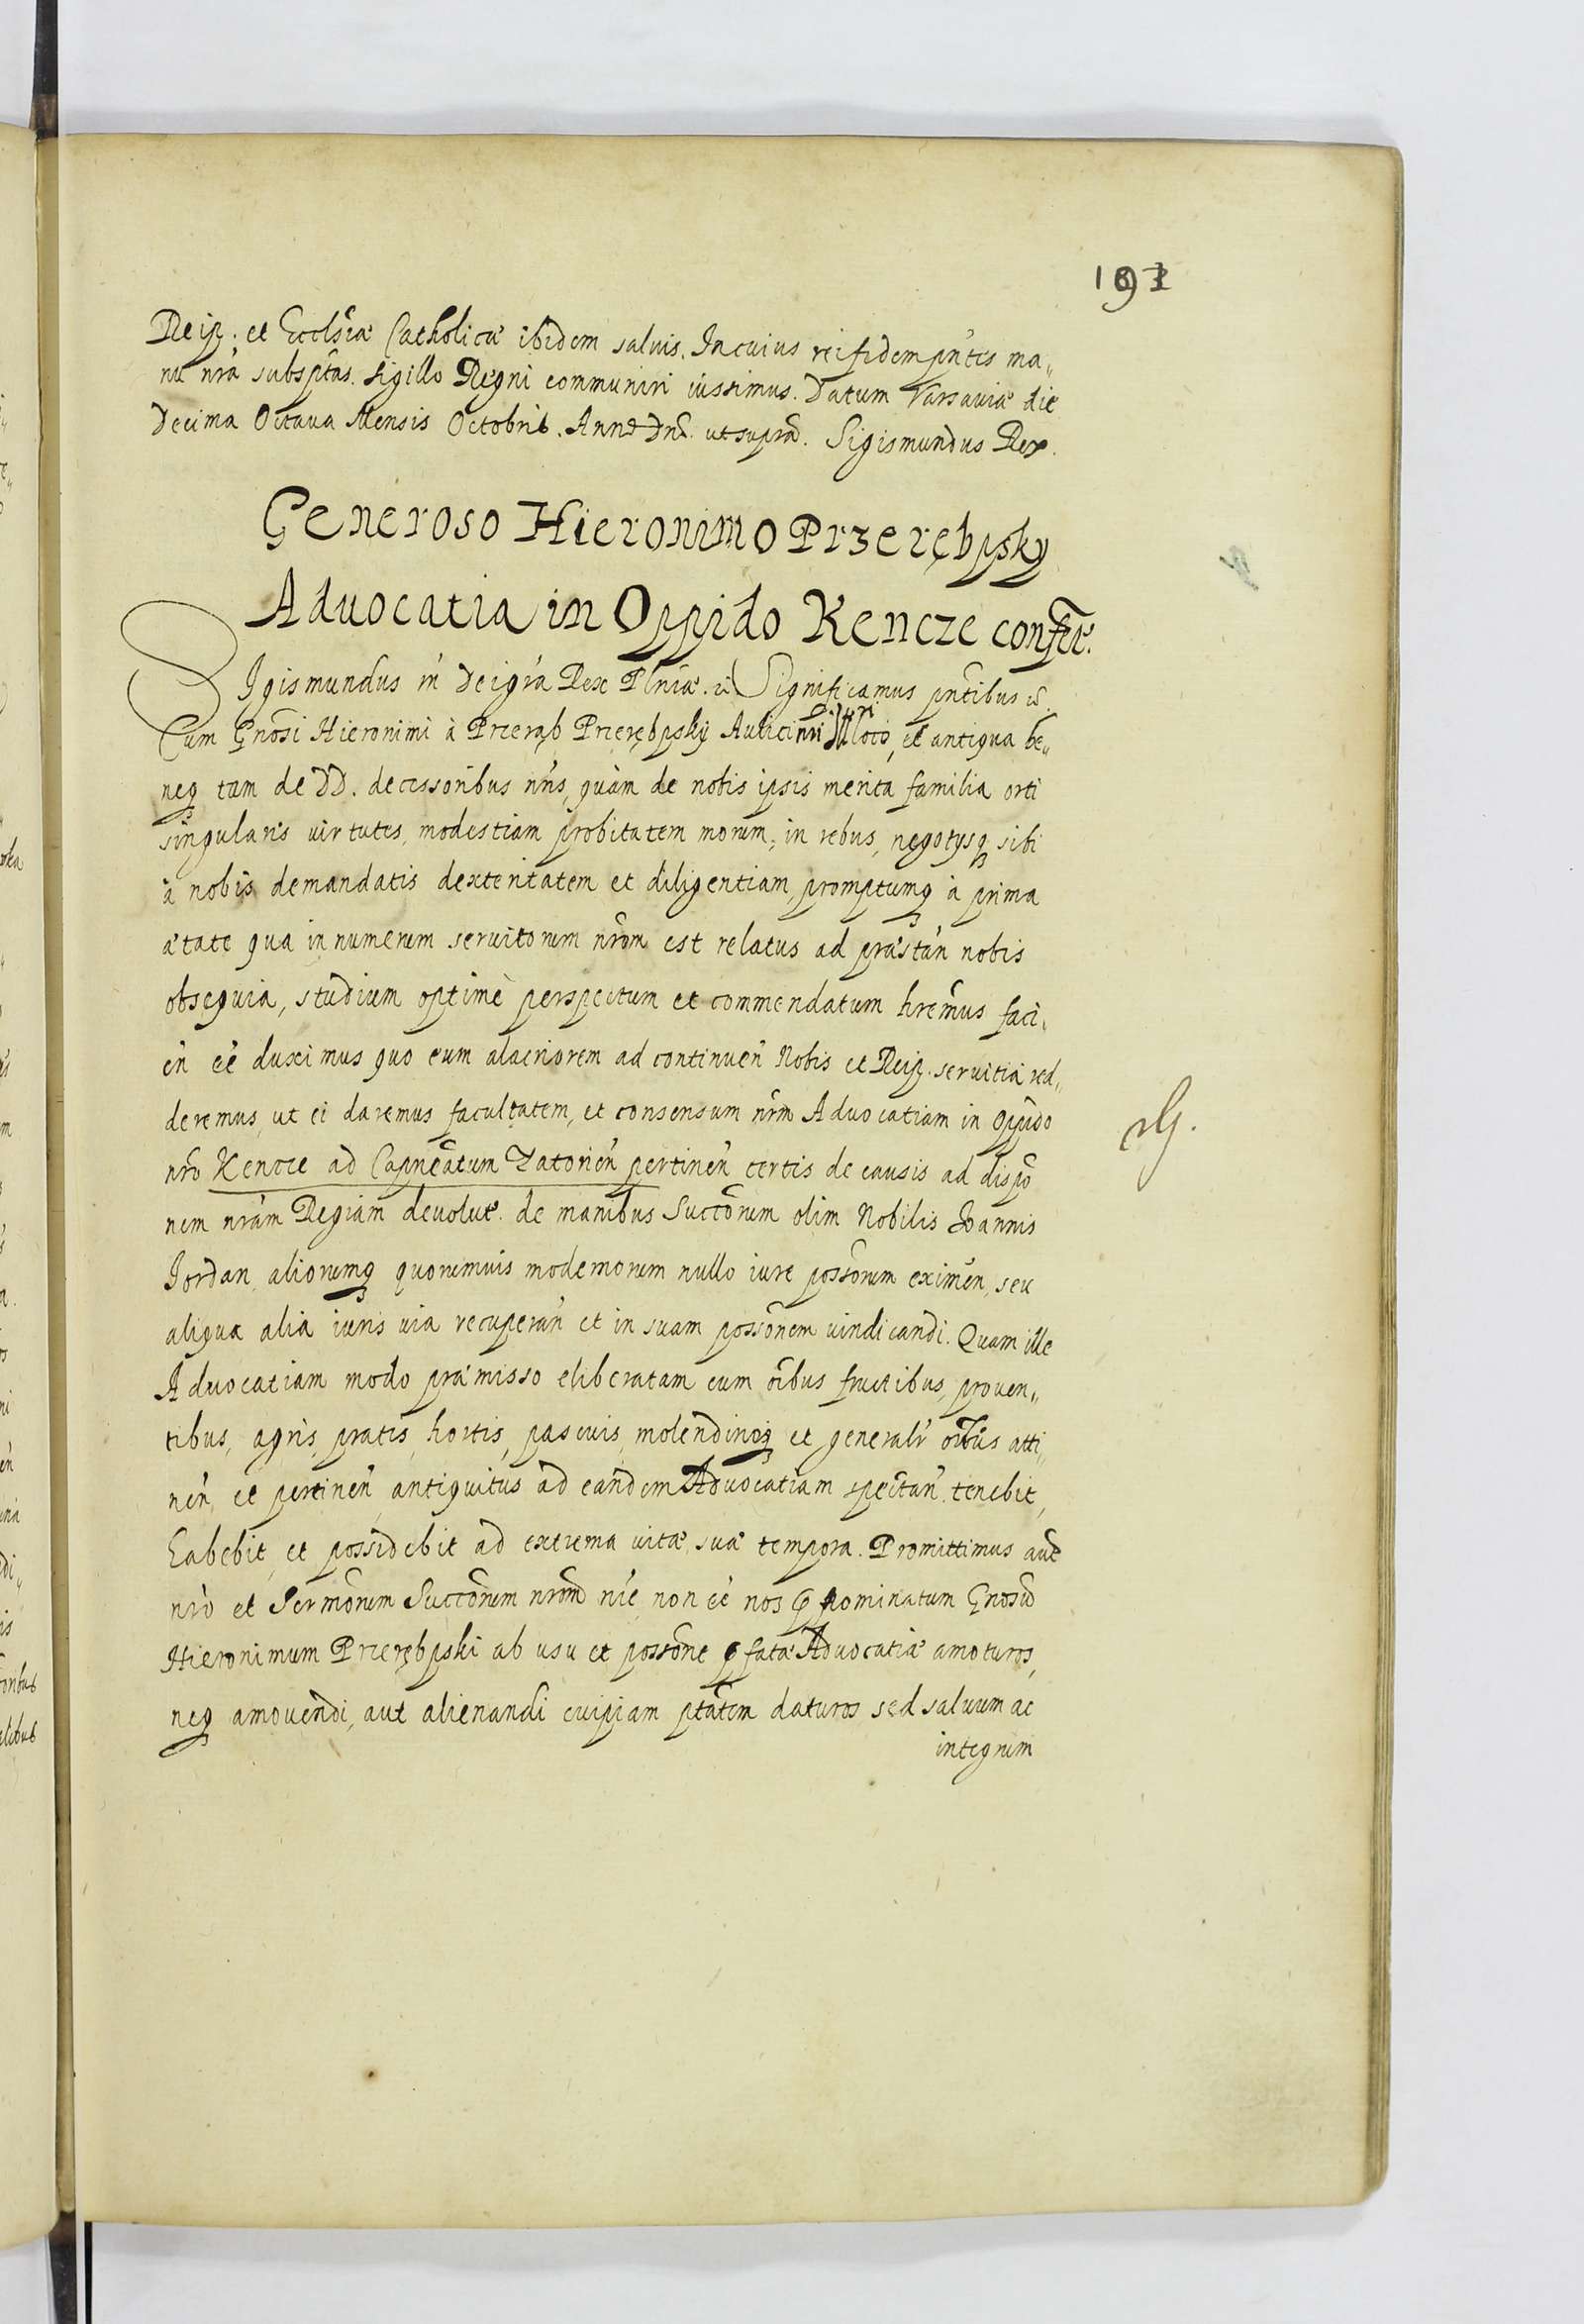 Reip. et Ecclsiæ Catholicæ ibidem salvis. In cuius rei fidem pntes ma„
nu nrã subsptas. sigillo Regni communiri iussimus. Datum Varsaviæ die
Decima Octava Mensis Octobris. Anno Dnĩ. ut supra. Sigismundus Rex.
Generoso Hieronimo Przerębpsky
Advocatia in Oppido Kencze confer̃.
SIgismundus iii Dei gra Rex Plniæ. Significamus pntibus
Cum Gnosi Hieronimi à Przerąb Przerębpský Aulici nri loco, et antiqua be„
neq tam de DD. decessoribus nris, quàm de nobis ipsis merita familia orti
singularis virtutes, modestiam probitatem morum, in rebus, negotysq sibi
à nobis demandatis dexteritatem et diligentiam, promptumq à prima
ætate qua in numerum servitorum nrõm est relatus ad præstan̄ nobis
obsequia, studium optimè perspectum et commendatum hremus faci„
en̄ ee̅ duximus quo eum alacriorem ad continuen̄ Nobis et Reip. servitia red„
deremus, ut ei daremus facultatem, et consensum nrm Advocatiam in Oppido
nrõ Kencze ad Capneatum Zatorien̄ pertinen̄ certis de causis ad dispõ
nem nram Regiam devolut̃. de manibus Succorum olim Nobilis Joannis
Jordan, aliorumq quorumvis modernorum nullo iure possorum eximen̄, seu
aliqua alia iuris via recuperan̄ et in suam possonem vindicandi. Quam ille
Advocatiam modo præmisso eliberatam cum oibus fructibus, proven„
tibus, agris, pratis, hortis, pascuis, molendinoq et generalr oibus atti„
nen̄, et pertinen̄ antiquitus ad eandem Advocatiam spectan̄. tenebit,
habebit, et possidebit ad extrema vitæ suæ tempora. Promittimus aut̃
nrõ et Sermorum Succorum nrom nie̅ non ee̅ nos nominatum Gnosũ
Hieronimum Przerębpski ab usu et possone fatæ Advocatiæ amoturos,
neq amovendi, aut alienandi cuipiam ptatem daturos sed salvum ac
integrum